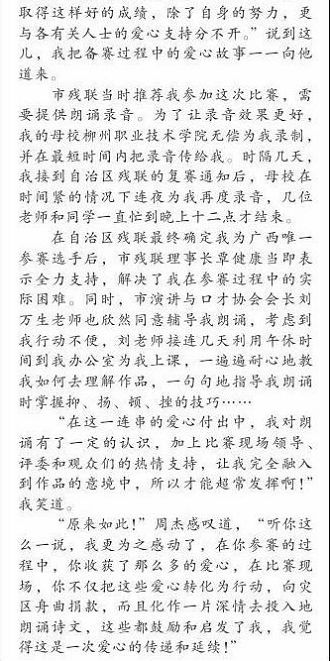 取得这样好的成绩，除了自身的努力，更
与各有关人士的爱心支持分不开。”说到这
儿，我把备赛过程中的爱心故事一一向他
道来。
市残联当时推荐我参加这次比赛，需
要提供朗诵录音。为了让录音效果更好，
我的母校柳州职业技术学院无偿为我录制，
并在最短时间内把录音传给我。时隔几天，
我接到自治区残联的复赛通知后，母校在
时间紧的情况下连夜为我再度录音，几位
老师和同学一直忙到晚上十二点才结束。
在自治区残联最终确定我为广西唯一
参赛选手后，市残联理事长覃健康当即表
示全力支持，解决了我在参赛过程中的实
际困难。同时，市演讲与口才协会会长刘
万生老师也欣然同意辅导我朗诵，考虑到
我行动不便，刘老师接连几天利用午休时
间到我办公室为我上课，一遍遍耐心地教
我如何去理解作品，一句句地指导我朗诵
时掌握抑、扬、顿、挫的技巧……
“在这一连串的爱心付出中，我对朗
诵有了一定的认识，加上比赛现场领导、
评委和观众们的热情支持，让我完全融入
到作品的意境中，所以才能超常发挥啊！”
我笑道。
“原来如此！”周杰感叹道，“听你这
么一说，我更为之感动了，在你参赛的过
程中，你收获了那么多的爱心，在比赛现
场，你不仅把这些爱心转化为行动，向灾
区舟曲捐款，而且化作一片深情去投入地
朗诵诗文，这些都鼓励和启发了我，我觉
得这是一次爱心的传递和延续！”